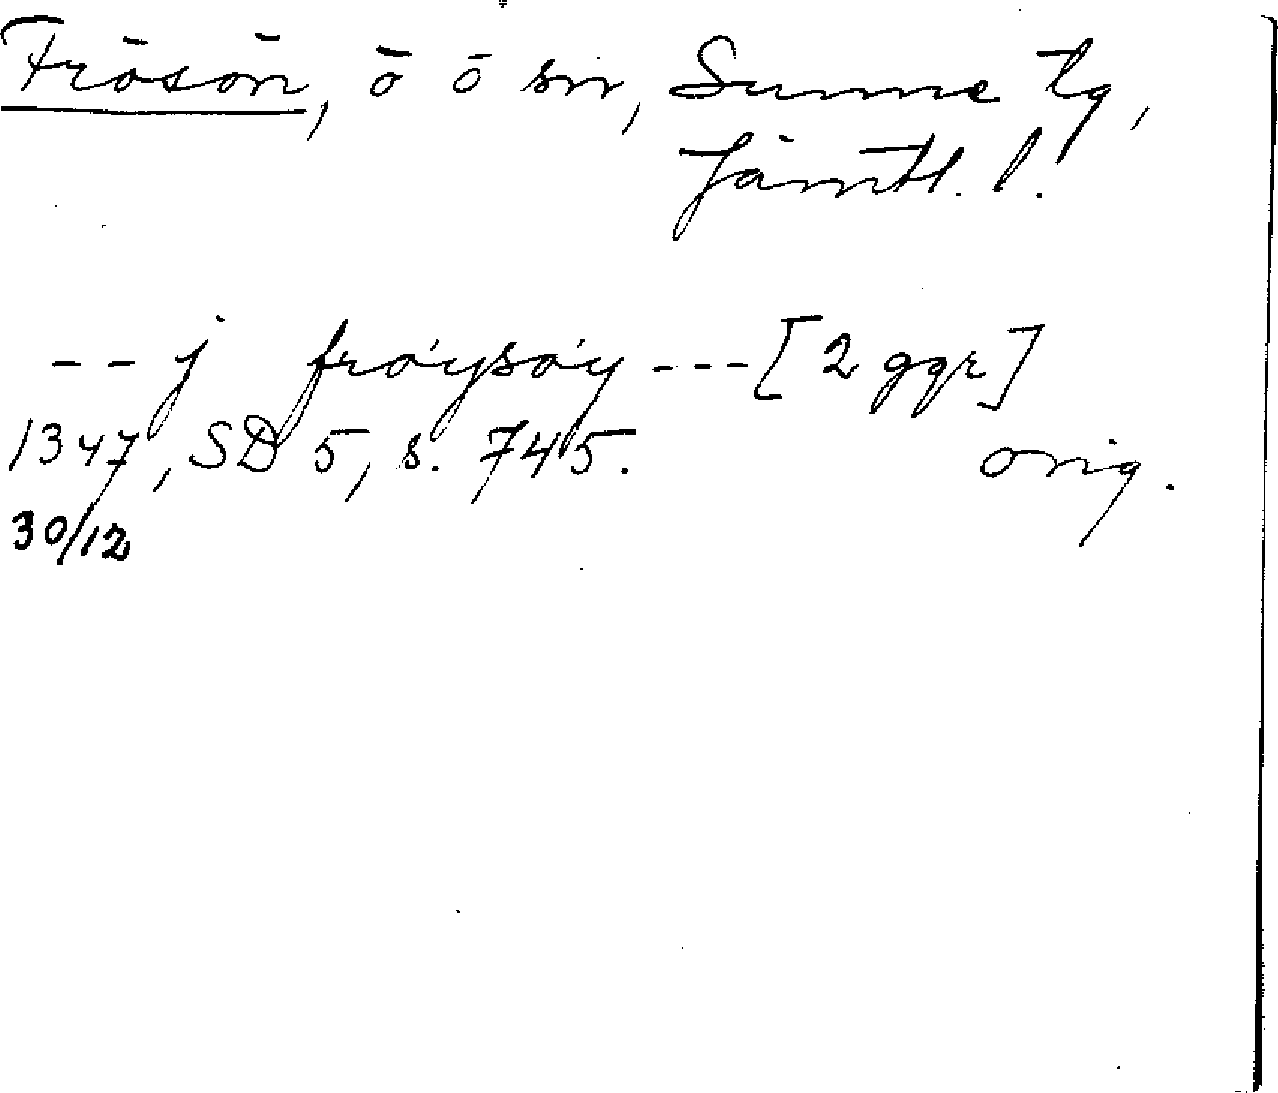 Frösön, ö o sn, Sunne tg,
Jämtl. l.
-- j frøysøy --- [2 ggr]
1347, SD 5, s. 745. orig.
30/12